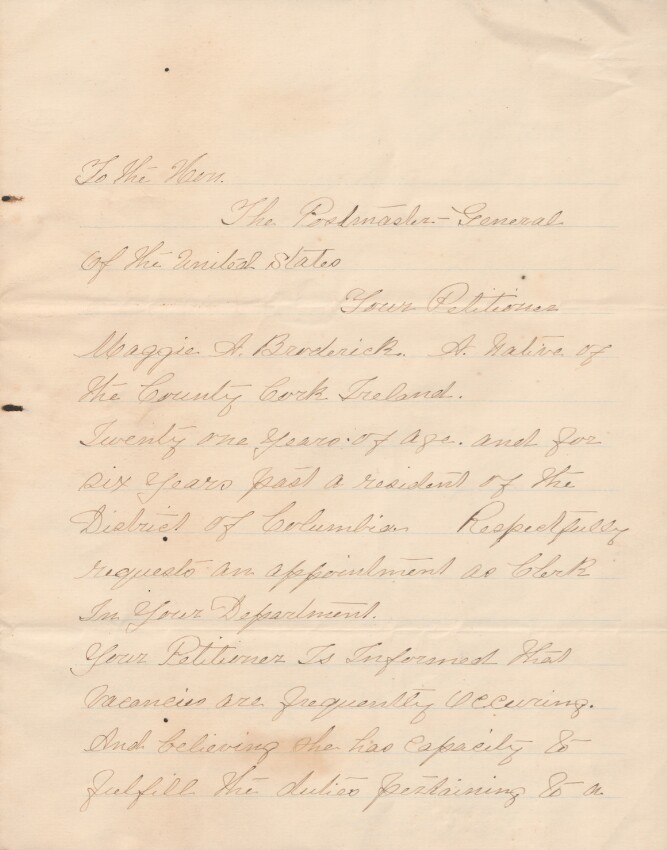 To the Hon.
The Postmaster-General
Of the United States
Your Petitioner
Maggie A. Broderick. A Native of
the County Cork Ireland.
Twenty one Years of age. and for
six Years past a resident of the
District of Columbia Respectfully
requests an appointment as Clerk
In Your Department.
Your Petitioner Is Informed that
Vacancies are frequently Occuring.
And believing she has capacity to
fulfill the duties pertaining to a